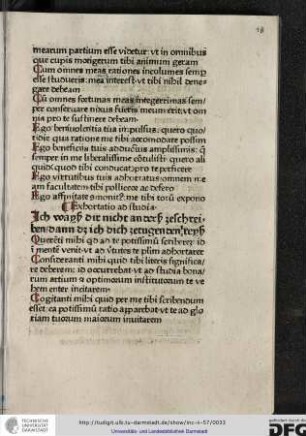 mearum partium esse videtur: vt in omnibus
que cupis morigerum tibi animum geram
Cum omnes meas rationes incolumes semp
esse studueris: mea interest vt tibi nihil dene-
gare debeam
Cū omnes fortunas meas integerrimas sem/
per conseruare nixus fueris meum erit: vt om
nis pro te sustinere debeam.
Ego beniuolentia tua impulsus: quero quo/
tidie qua ratione me tibi accomodare possim
Ego beneficiis tuis adductus amplissimis: q̄
semper in me liberalissime cōtulisti: quero ali
quid: quod tibi conducat: pro te perficere
Ego virtutibus tuis adhortatus omnem me
am facultatem tibi polliceor ac defero
Ego affinitate s monit⁹: me tibi totū expono
Exhortatio ad studia.
Ich wayß dir nicht anderß zeschrei
ben/dann dz ich dich zetugenden
Querēti mihi qd ad te potissimū scriberem: id
i mentē venit: vt ad v̄tutes te plim adhortarer
Consideranti mihi quid tibi literis significa/
re deberem: id occurrebat: vt ad studia bona/
rum artium & optimorum institutorum te ve
hementer incitarem
Cogitanti mihi quid per me tibi scribendum
esset: ea potissimū ratio apparebat: vt te ad glo
riam tuorum maiorum inuitarem
TECHNISCHE
UNIVERSITÄT
DARMSTADT
http://tudigit.ulb.tu-darmstadt.de/show/inc-ii-57/0033
Universitäts- und Landesbibliothek Darmstadt
gefördert von der
DFG